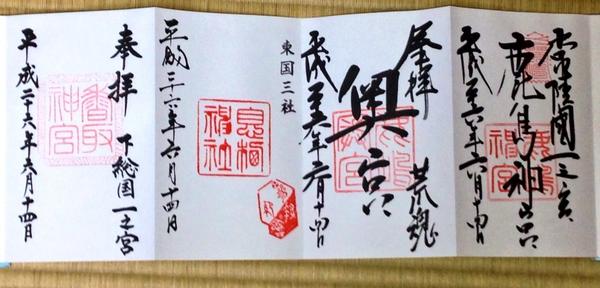 常陸國一之宮
鹿島神宮
鹿島神宮
平成二十六年六月十四日
奉拝 荒魂
奥宮
平成二十六年六月十四日
東国三社
息栖神社
平成二十六年六月十四日
奉拝 下総国一之宮
香取神宮
平成二十六年六月十四日